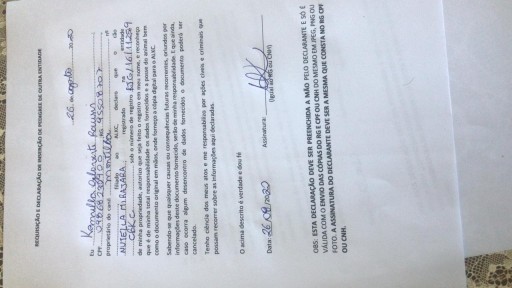 REQUISIÇÃO E DECLARAÇÃO DE INSERÇÃO DE PEDIGREE DE OUTRA ENTIDADE
26 agosto 2020
Eu
CPF RG
proprietário do canil nº
filiado ao ALKC, declaro que o cão
registrado na entidade
CBKC sob o número de registro
de minha propriedade, autorizo que seja feito o registro em meu nome, e reconheço
que é de minha total responsabilidade os dados fornecidos e a posse do animal bem
como o documento original em mãos, onde forneço a cópia digital para o ALKC.
Sabendo se que quaisquer causas ou consequências futuras recorrentes, oriundos por
informações deste documento fornecido, serão de minha responsabilidade. E que ainda,
caso ocorra algum desencontro de dados fornecidos o documento poderá ser
cancelado.
Tenho ciência dos meus atos e me responsabilizo por ações cíveis e criminais que
possam recorrer sobre as informações aqui declaradas.
O acima descrito é verdade e dou fé
Data: 26/08/2020 Assinatura:
(Igual ao RG ou CNH)
OBS: ESTA DECLARAÇÃO DEVE SER PREENCHIDA A MÃO PELO DECLARANTE E SÓ É
VÁLIDA COM O ENVIO DAS CÓPIAS DO RG E CPF OU CNH DO MESMO EM JPEG, PNG OU
FOTO. A ASSINATURA DO DECLARANTE DEVE SER A MESMA QUE CONSTA NO RG CPF
OU CNH.